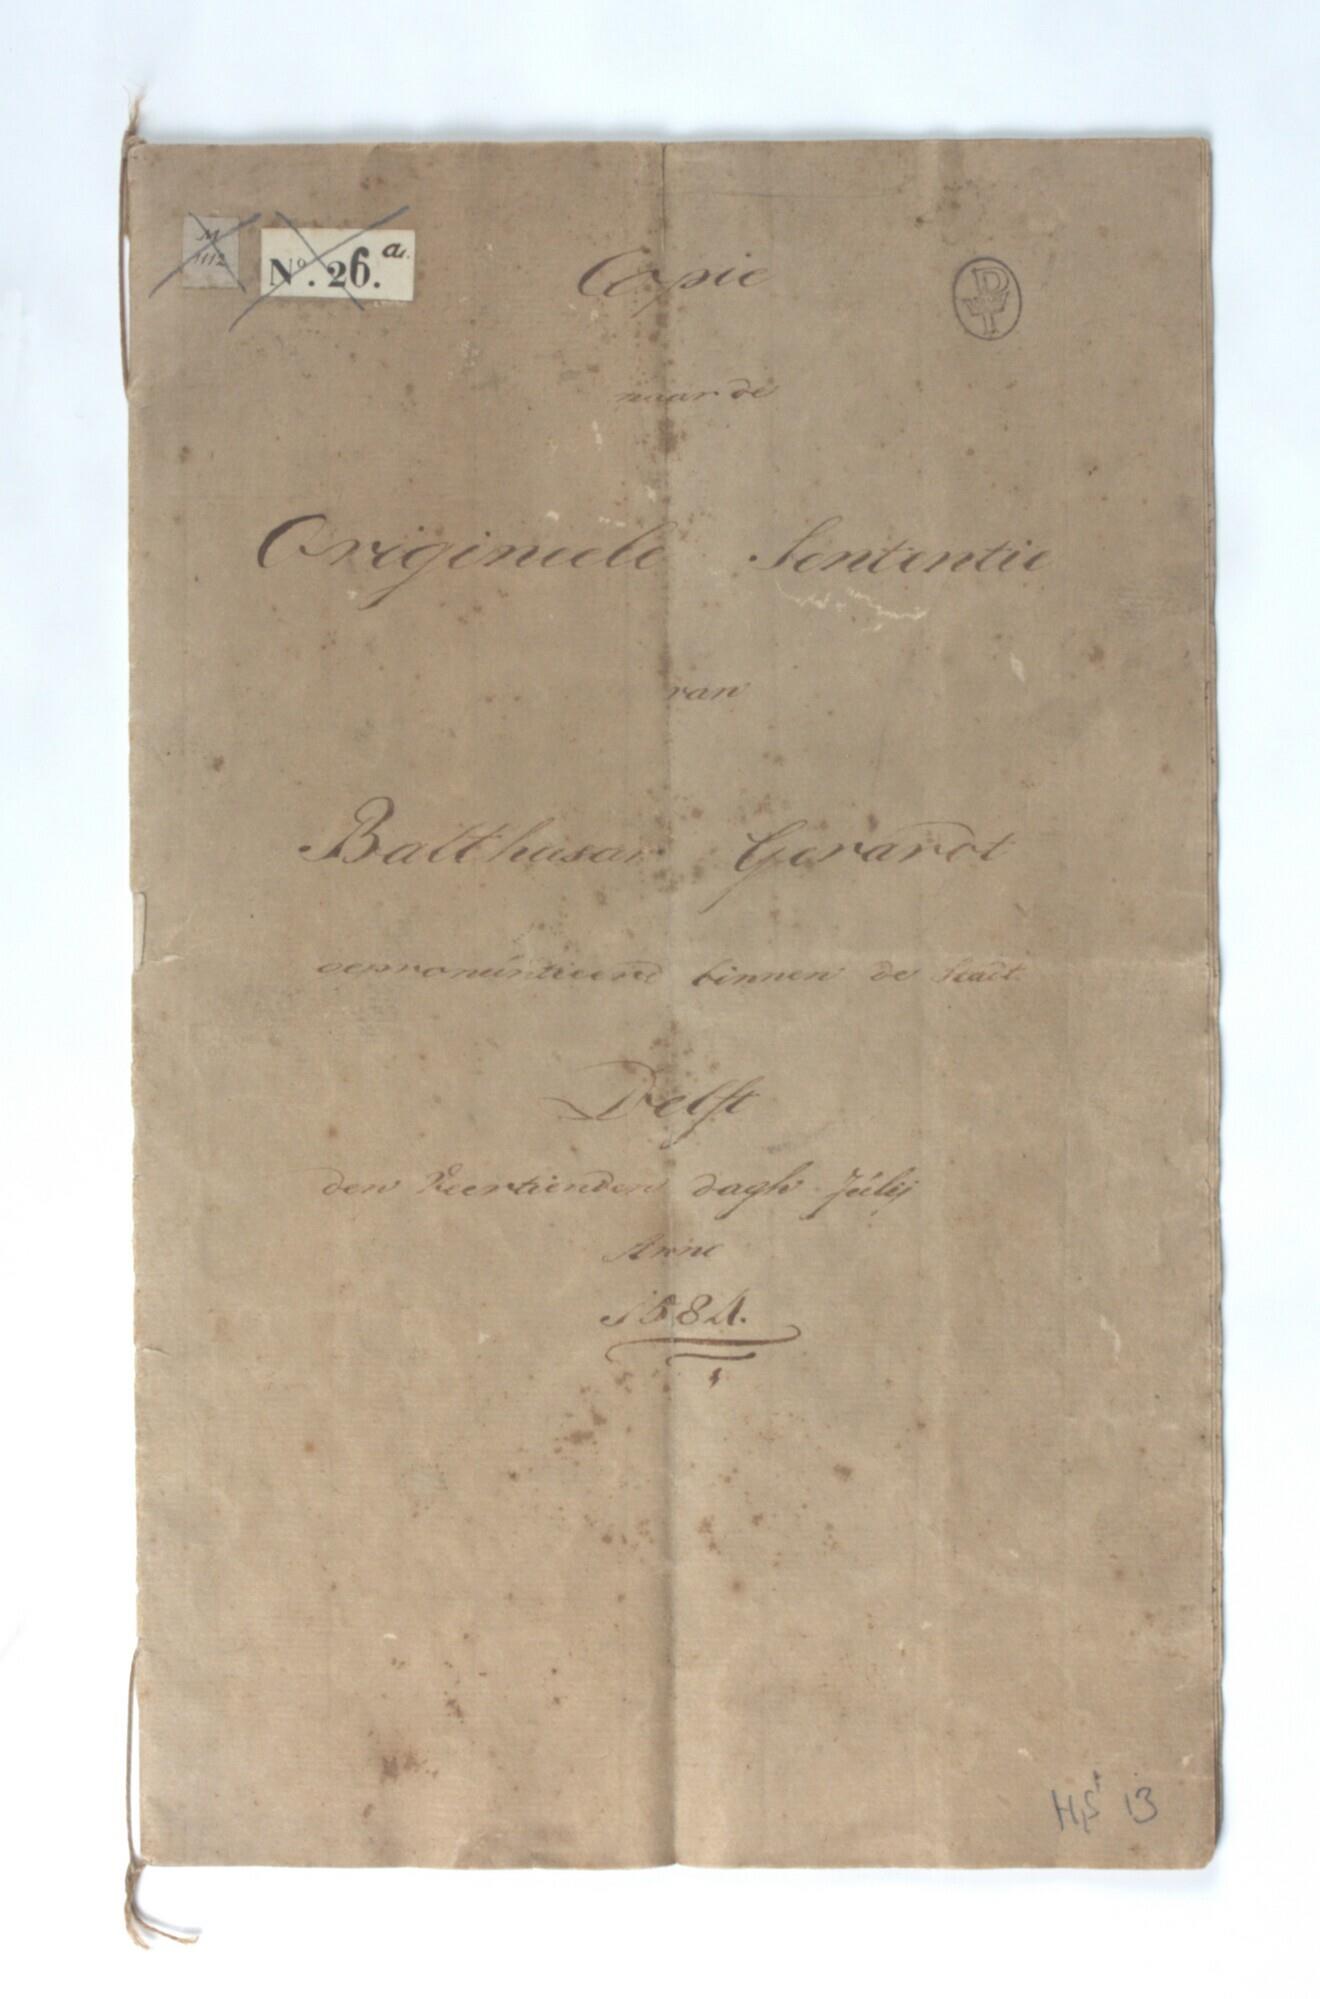 M
1112
Nº. 26.a.
Copie
naar de
Origineele Sententie
van
Balthasar Gerardt
gepronúntieerd binnen de Stadt
Delft
den Veertienden dagh Júlij
Anno
1584.
HS 13